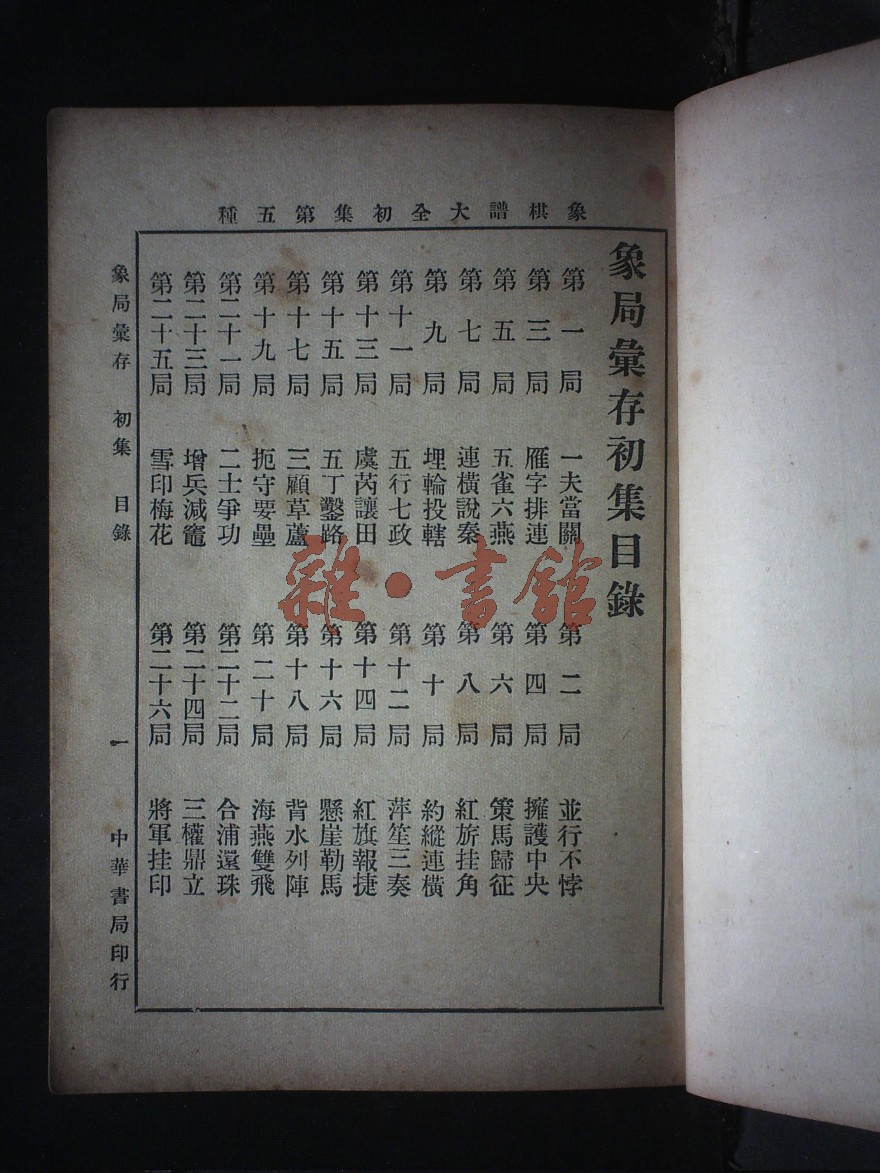 象棋譜大全初集第五種
象局彙存初集目錄
第一局 一夫當關 第二局 並行不悖
第三局 雁字排連 第四局 擁護中央
第五局 五雀六燕 第六局 策馬歸征
第七局 連橫說秦 第八局 紅旂挂角
第九局 埋輪投轄 第十局 約縱連橫
第十一局 五行七政 第十二局 萍笙三奏
第十三局 虞芮讓田 第十四局 紅旗報捷
第十五局 五丁鑿路 第十六局 懸崖勒馬
第十七局 三顧草蘆 第十八局 背水列陣
第十九局 扼守要壘 第二十局 海燕雙飛
第二十一局 二士爭功 第二十二局 合浦還珠
第二十三局 增兵減竈 第二十四局 三權鼎立
第二十五局 雪印梅花 第二十六局 將軍挂印
象局彙存 初集 目錄 一 中華書局印行
雜·書館